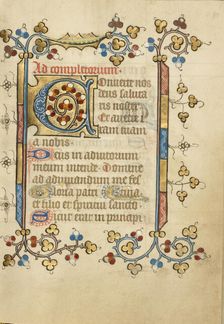 Ad completorium.
Conuerte nos
deus saluta
ris noster.
Et auerte i
ram tuam
a nobis.
Deus in adiutorium
meum intende. Domine
ad adiuuandum me fes
Gloria patri
et filio et spiritui sancto
Sicut erat in principi